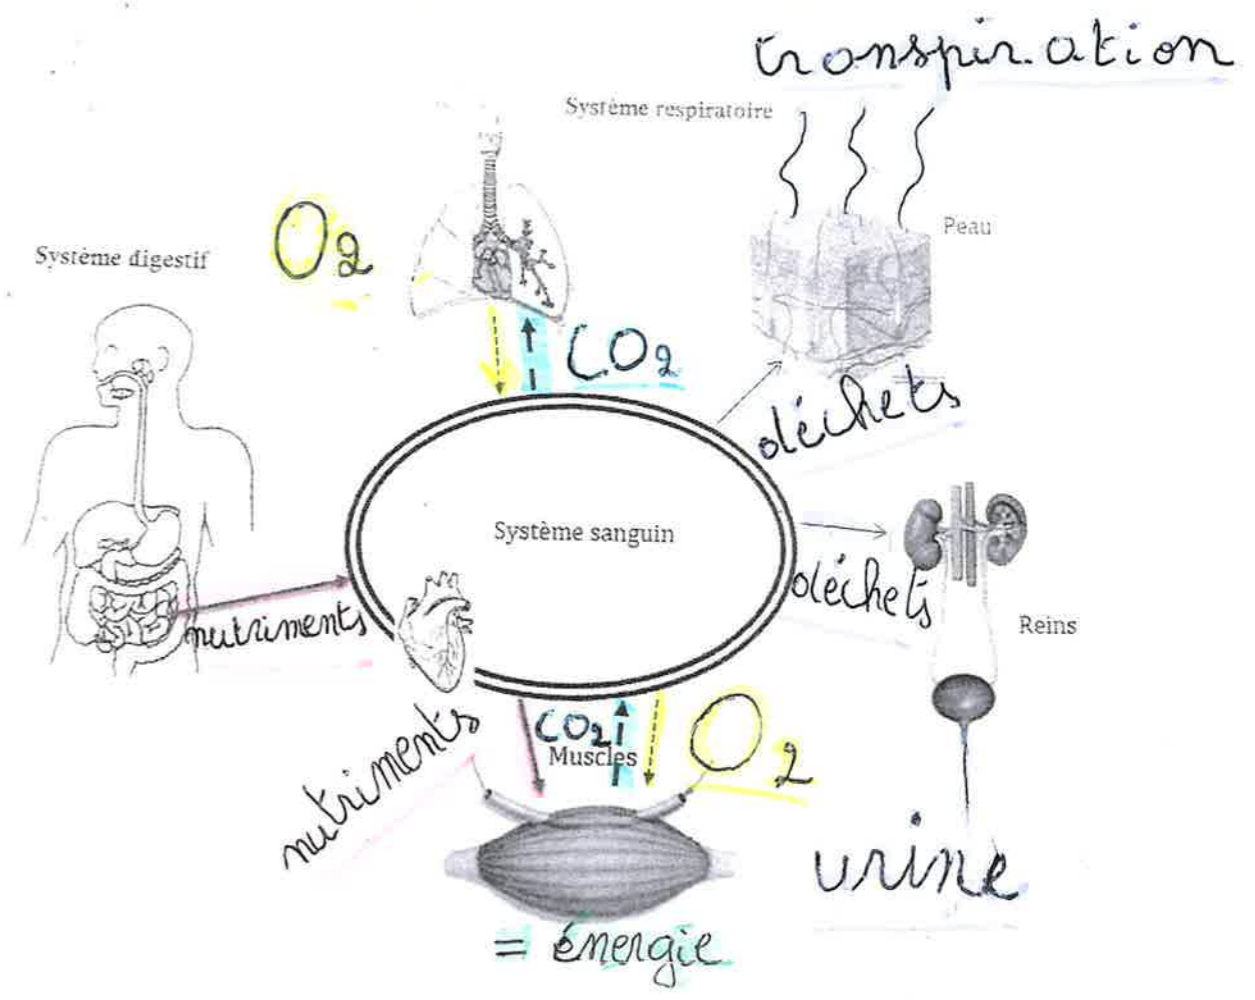 transpiration
Système respiratoire
O2
Peau
Système digestif
CO2
déchets
Système sanguin
déchets
nutriments
Reins
nutriments
CO2
O2
Muscles
urine
= énergie